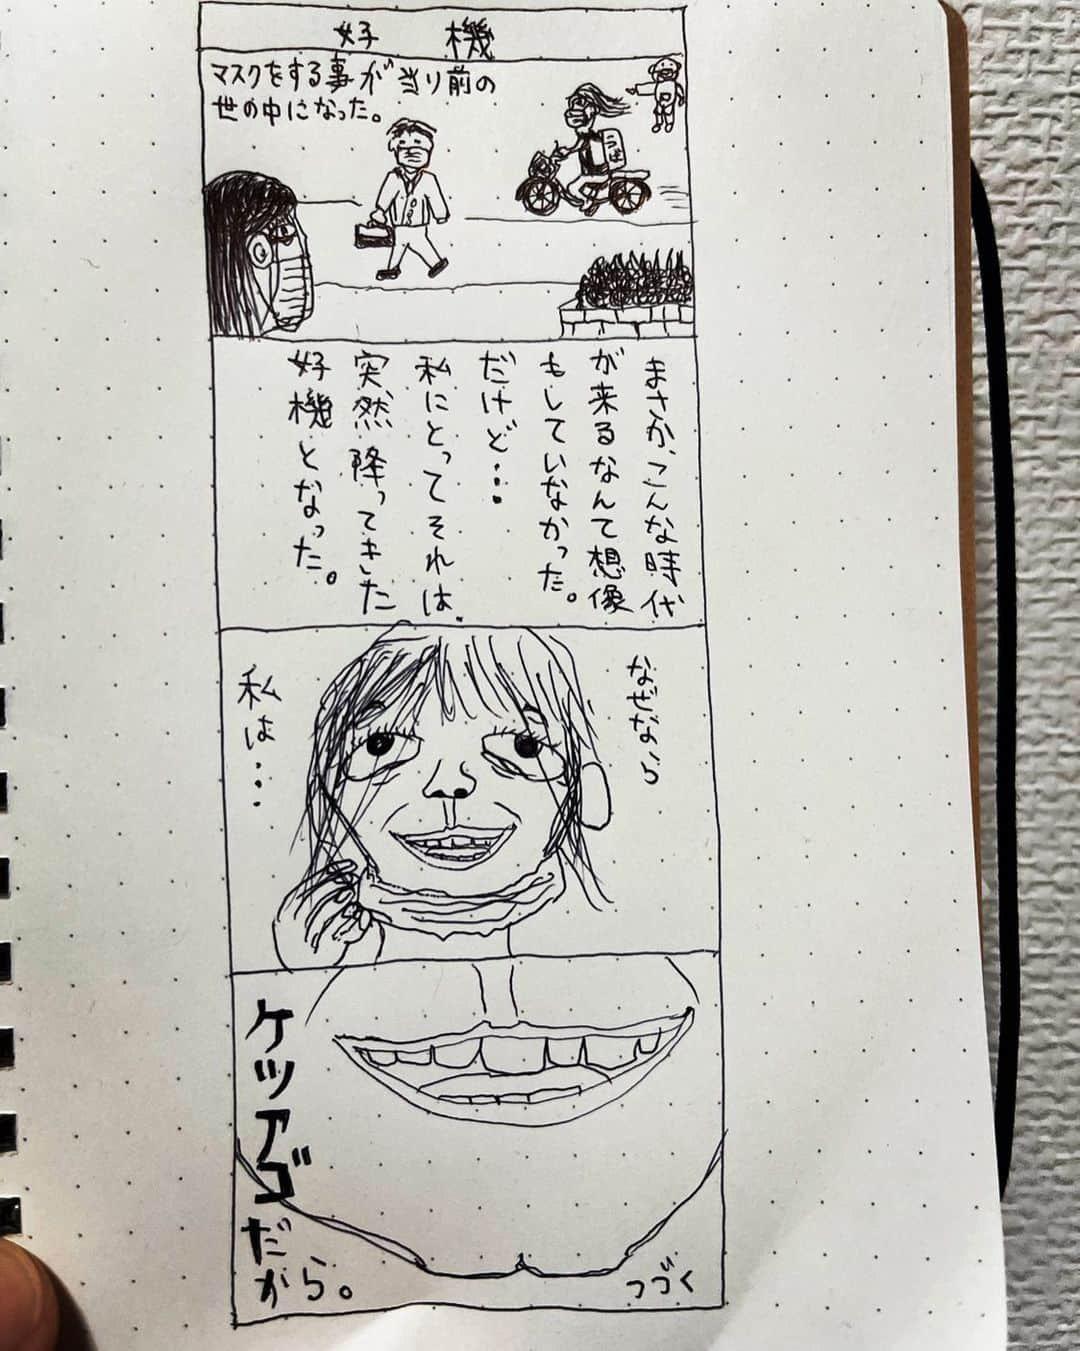 好機
マスクをする事が当り前の
世の中になった。
まさか、こんな時代
が来るなんて想像
もしていなかった。
だけど…
私にとってそれは、
突然降ってきた
好機となった。
なぜなら
私は…
ケツアゴ
だ
から。
つづく